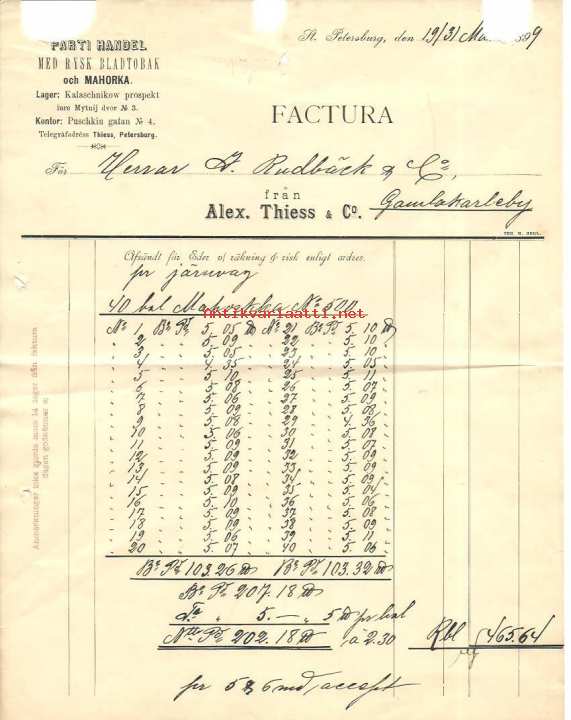 St. Petersburg, den 19/31 Ma
PARTI HANDEL
MED RYSK BLADTOBAK
och MAHORKA.
Lager: Kalaschnikow prospekt
inre Mytnij dvor № 3.
Kontor: Puschkin gatan № 4.
Telegrafadréss Thiess, Petersburg.
FACTURA
För Herrar A. Rudbäck & Co.
från
Gamlakarleby
Alex. Thiess & Co.
Afsändt för Eder v/ räkning & risk enligt ordres.
pr järnvag
40 bal Mahorkka No 500
antikvariaatti.net
No 1 Bo Pt 5. 05 No 21 Bo Pt 5. 10
2 5. 09 22 5. 10
3 5. 05 23 5. 10
4 4. 35 24 5. 05
5 5. 10 25 5. 11
6 5. 08 26 5. 07
7 5. 06 27 5. 09
8 5. 09 28 5. 08
9 5. 08 29 4. 36
10 5. 06 30 5. 08
11 5. 09 31 5. 07
12 5. 09 32 5. 09
13 5. 09 33
14 5. 08 34 5. 09
15 5. 09 35 5. 04
16 5. 10 36 5. 06
17 5. 09 37 5. 08
18 5. 09 38 5. 09
19 5. 06 39 5. 11
20 5. 07 40 5. 06
Bo Pt 103.26 Bo Pt 103.32
Bo Pt 207.18
Ta " 5.— " 5 pr bal
Ntto Pt 202.18 a 2.30 Rbl 465.64
pr 5 & 6 md/ accept